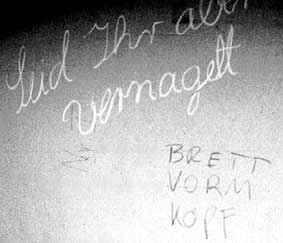 Seid Ihr aber
vernagelt
BRETT
VORM
KOPF